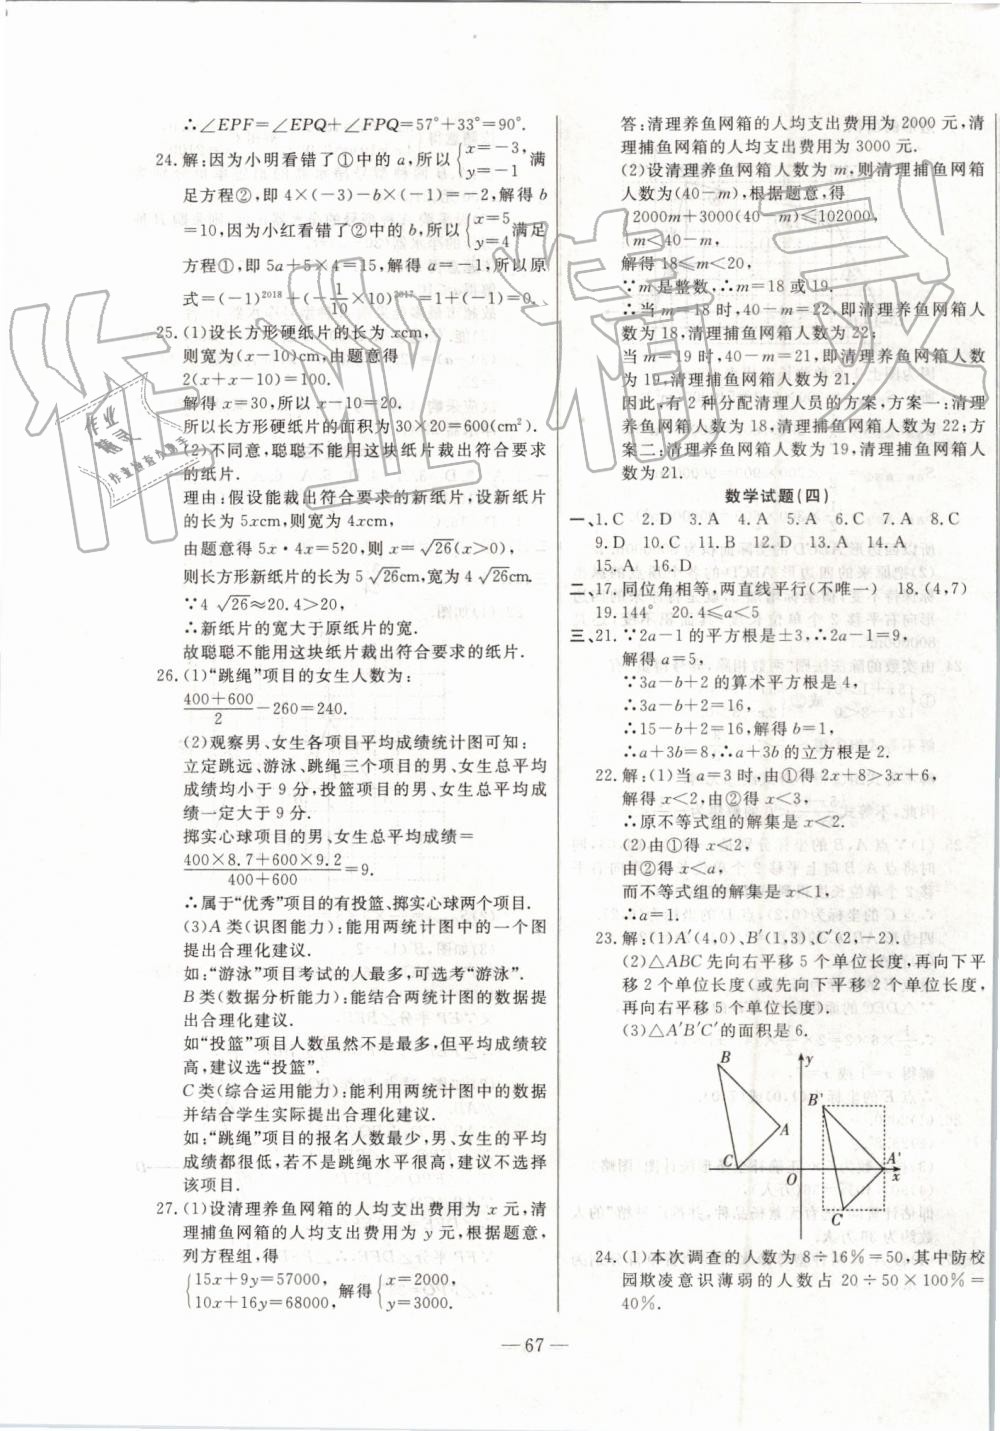 ∴∠EPF=∠EPQ+∠FPQ=57°+33°=90°.
24.解:因为小明看错了①中的a,所以{x=-3, y=-1 满
足方程②,即4×(-3)-b×(-1)=-2,解得b
=10,因为小红看错了②中的b,所以{x=5 y=4 满足
方程①,即5a+5×4=15,解得a=-1,所以原
式=(-1)²⁰¹⁸+(-1/10×10)²⁰¹⁷=1+(-1)=0.
25.(1)设长方形硬纸片的长为xcm,
则宽为(x-10)cm,由题意得
2(x+x-10)=100.
解得x=30,所以x-10=20.
所以长方形硬纸片的面积为30×20=600(cm²).
(2)不同意,聪聪不能用这块纸片裁出符合要求
的纸片.
理由:假设能裁出符合要求的新纸片,设新纸片
的长为5xcm,则宽为4xcm,
由题意得5x·4x=520,则x=√26(x>0),
则长方形新纸片的长为5√26,宽为4√26.
∵4√26≈20.4>20,
∴新纸片的宽大于原纸片的宽.
故聪聪不能用这块纸片裁出符合要求的纸片.
26.(1)“跳绳”项目的女生人数为:
(400+600)/2-260=240.
(2)观察男、女生各项目平均成绩统计图可知:
立定跳远、游泳、跳绳三个项目的男、女生总平均
成绩均小于9分,投篮项目的男、女生总平均成
绩一定大于9分.
掷实心球项目的男、女生总平均成绩=
(400×8.7+600×9.2)/(400+600)=9.
∴属于“优秀”项目的有投篮、掷实心球两个项目.
(3)A类(识图能力):能用两统计图中的一个图
提出合理化建议.
如:“游泳”项目考试的人最多,可选考“游泳”.
B类(数据分析能力):能结合两统计图的数据提
出合理化建议.
如“投篮”项目人数虽然不是最多,但平均成绩较
高,建议选“投篮”.
C类(综合运用能力):能利用两统计图中的数据
并结合学生实际提出合理化建议.
如:“跳绳”项目的报名人数最少,男、女生的平均
成绩都很低,若不是跳绳水平很高,建议不选择
该项目.
27.(1)设清理养鱼网箱的人均支出费用为x元,清
理捕鱼网箱的人均支出费用为y元,根据题意,
列方程组,得
{15x+9y=57000, 10x+16y=68000, 解得{x=2000, y=3000.
答:清理养鱼网箱的人均支出费用为2000元,清
理捕鱼网箱的人均支出费用为3000元.
(2)设清理养鱼网箱人数为m,则清理捕鱼网箱
人数为(40-m),根据题意,得
{2000m+3000(40-m)≤102000, m<40-m,
解得18≤m<20,
∵m是整数,∴m=18或19.
∴当m=18时,40-m=22,即清理养鱼网箱人
数为18,清理捕鱼网箱人数为22;
当m=19时,40-m=21,即清理养鱼网箱人数
为19,清理捕鱼网箱人数为21.
因此,有2种分配清理人员的方案,方案一:清理养
鱼网箱人数为18,清理捕鱼网箱人数为22;方
案二:清理养鱼网箱人数为19,清理捕鱼网箱
人数为21.
数学试题(四)
一、1.C 2.D 3.A 4.A 5.A 6.C 7.A 8.C
9.D 10.C 11.B 12.D 13.A 14.A
15.A 16.D
二、17.同位角相等,两直线平行(不唯一) 18.(4,7)
19.144° 20.4≤a<5
三、21.∵2a-1的平方根是±3,∴2a-1=9,
解得a=5,
∵3a-b+2的算术平方根是4,
∴3a-b+2=16,
∴15-b+2=16,解得b=1,
∴a+3b=8,∴a+3b的立方根是2.
22.解:(1)当a=3时,由①得2x+8>3x+6,
解得x<2,由②得x<3,
∴原不等式组的解集是x<2.
(2)由①得x<2,
由②得x<a,
而不等式组的解集是x<1,
∴a=1.
23.解:(1)A′(4,0)、B′(1,3)、C′(2,-2).
(2)△ABC先向右平移5个单位长度,再向下平
移2个单位长度(或先向下平移2个单位长度,
再向右平移5个单位长度).
(3)△A′B′C′的面积是6.
B y B′ A C O A′ x C′
24.(1)本次调查的人数为8÷16%=50,其中防校
园欺凌意识薄弱的人数占20÷50×100%=
40%.
— 67 —
作业精灵